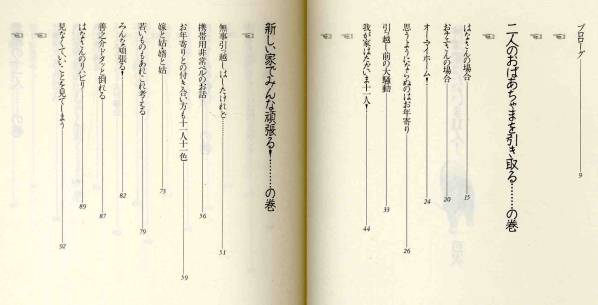 プローグ 9
二人のおばあちゃまを引き取る………の巻
はなさんの場合 15
おきさんの場合 20
オー・マイ・ホーム！ 24
思うようにならぬのはお年寄り 26
引っ越し前の大騒動 33
我が家はただいま十一人！ 44
新しい家でみんな頑張る！………の巻
無事引っ越しはしたけれど… 51
携帯用非常ベルのお話 56
お年寄りとの付き合い方も十一人十一色 59
嫁と姑、婿と姑 73
若いものもあれこれ考える 79
みんな頑張る！ 82
善之介ドタッと倒れる 87
はなさんのリハビリ 89
見なくていいことも見てしまう 92